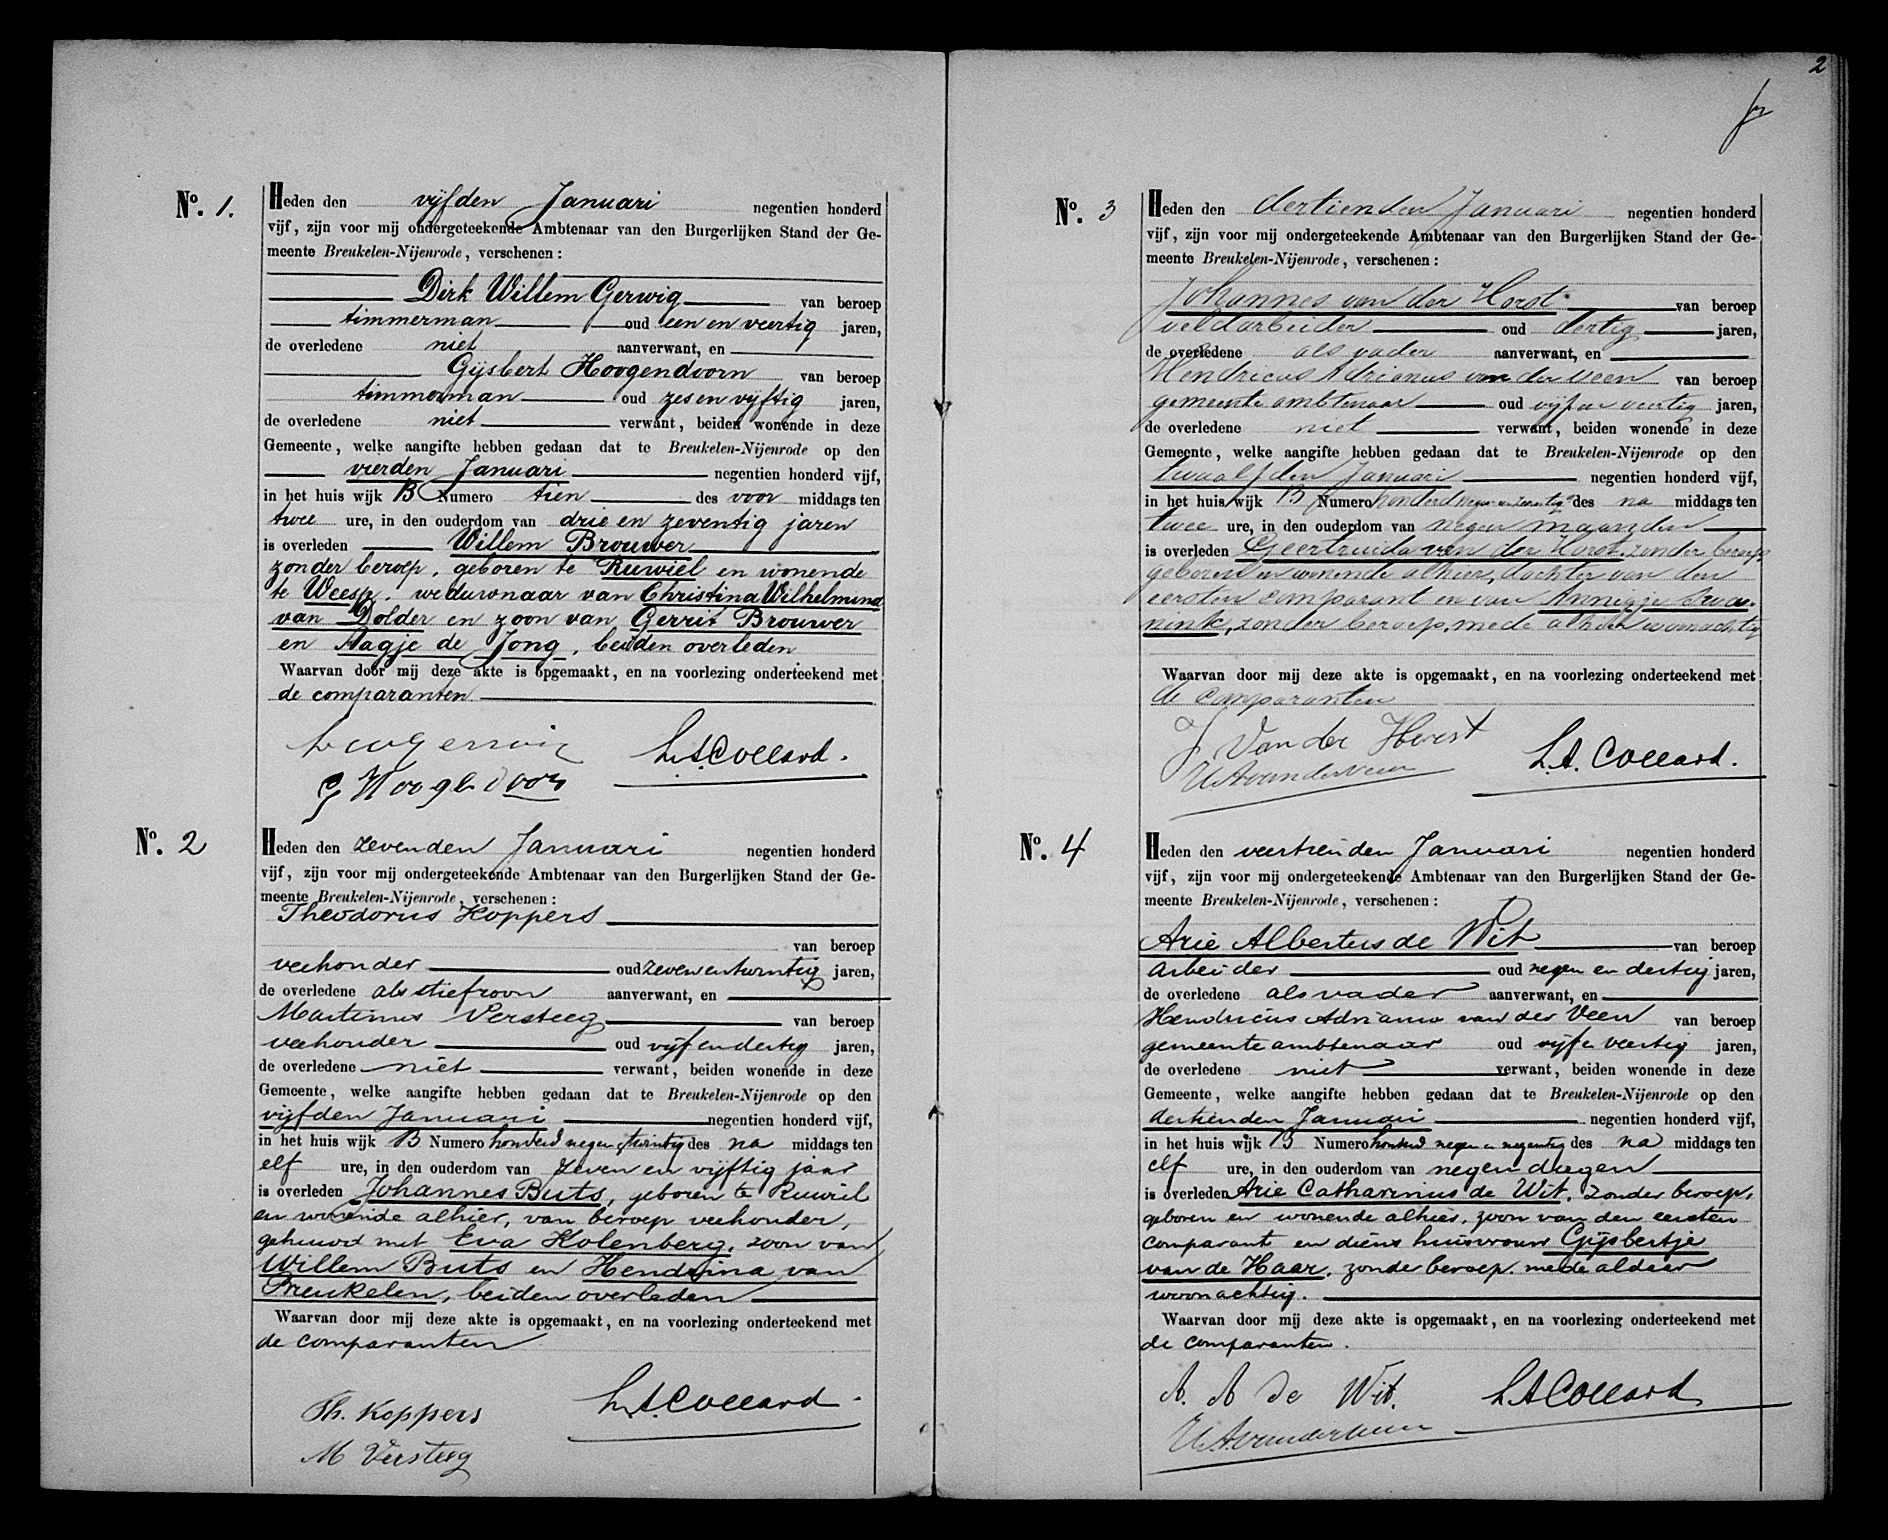 2
No. 1.
Heden den vijfden Januari negentien honderd
vijf, zijn voor mij ondergeteekende Ambtenaar van den Burgerlijken Stand der Ge-
meente Breukelen-Nijenrode, verschenen:
Dirk Willem Gerwig van beroep
timmerman oud een en veertig jaren,
de overledene niet aanverwant, en
Gijsbert Hoogendoorn van beroep
timmerman oud zes en vijftig jaren,
de overledene niet verwant, beiden wonende in deze
Gemeente, welke aangifte hebben gedaan dat te Breukelen-Nijenrode op den
vierden Januari negentien honderd vijf,
in het huis wijk B Numero tien des voor middags ten
twee ure, in den ouderdom van drie en zeventig jaren
is overleden Willem Brouwer
zonder beroep, geboren te Ruwiel en wonende
te Weesp, weduwnaar van Christina Wilhelmina
van Dolder en zoon van Gerrit Brouwer
en Aagje de Jong, beiden overleden.
Waarvan door mij deze akte is opgemaakt, en na voorlezing onderteekend met
de comparanten.
L.A. Collard.
G Hoogendoorn
No. 2
Heden den zevenden Januari negentien honderd
vijf, zijn voor mij ondergeteekende Ambtenaar van den Burgerlijken Stand der Ge-
meente Breukelen-Nijenrode, verschenen:
Theodorus Koppers
van beroep
veehouder oud zeven en twintig jaren,
de overledene als stiefzoon aanverwant, en
Martinus Versteeg van beroep
veehouder oud vijf en dertig jaren,
de overledene niet verwant, beiden wonende in deze
Gemeente, welke aangifte hebben gedaan dat te Breukelen-Nijenrode op den
vijfden Januari negentien honderd vijf,
in het huis wijk B Numero honderd negen twintig des na middags ten
elf ure, in den ouderdom van zeven en vijftig jaar
is overleden Johannes Buts, geboren te Ruwiel
en wonende alhier, van beroep veehouder,
gehuwd met Eva Kolenberg, zoon van
Willem Buts en Hendrina van
Breukelen, beiden overleden
Waarvan door mij deze akte is opgemaakt, en na voorlezing onderteekend met
de comparanten
Th. Koppers L.A. Collard.
M Versteeg
No. 3
Heden den dertienden Januari negentien honderd
vijf, zijn voor mij ondergeteekende Ambtenaar van den Burgerlijken Stand der Ge-
meente Breukelen-Nijenrode, verschenen:
Johannes van der Horst van beroep
veldarbeider oud dertig jaren,
de overledene als vader aanverwant, en
Hendricus Adrianus van der Veen van beroep
gemeente ambtenaar oud vijf en veertig jaren,
de overledene niet verwant, beiden wonende in deze
Gemeente, welke aangifte hebben gedaan dat te Breukelen-Nijenrode op den
twaalfden Januari negentien honderd vijf,
in het huis wijk B Numero honderd des na middags ten
twee ure, in den ouderdom van negen maanden
is overleden Geertruida van der Horst, zonder beroep,
geboren en wonende alhier, dochter van den
eersten comparant en van Annigje Zwa-
nink, zonder beroep, mede alhier woonachtig
Waarvan door mij deze akte is opgemaakt, en na voorlezing onderteekend met
de comparanten
J van der Horst L.A. Collard.
HAvanderveen
No. 4
Heden den veertienden Januari negentien honderd
vijf, zijn voor mij ondergeteekende Ambtenaar van den Burgerlijken Stand der Ge-
meente Breukelen-Nijenrode, verschenen:
Arie Albertus de Wit van beroep
arbeider oud negen en dertig jaren,
de overledene als vader aanverwant, en
Hendricus Adrianus van der Veen van beroep
gemeente ambtenaar oud vijf en veertig jaren,
de overledene niet verwant, beiden wonende in deze
Gemeente, welke aangifte hebben gedaan dat te Breukelen-Nijenrode op den
dertienden Januari negentien honderd vijf,
in het huis wijk B Numero honderd negen en negentig des na middags ten
elf ure, in den ouderdom van negen dagen
is overleden Arie Catharinus de Wit, zonder beroep,
geboren en wonende alhier, zoon van den eersten
comparant en diens huisvrouw Gijsbertje
van de Haar, zonder beroep, mede aldaar
woonachtig.
Waarvan door mij deze akte is opgemaakt, en na voorlezing onderteekend met
de comparanten.
A. A de Wit. L A Collard
HAvanderveen